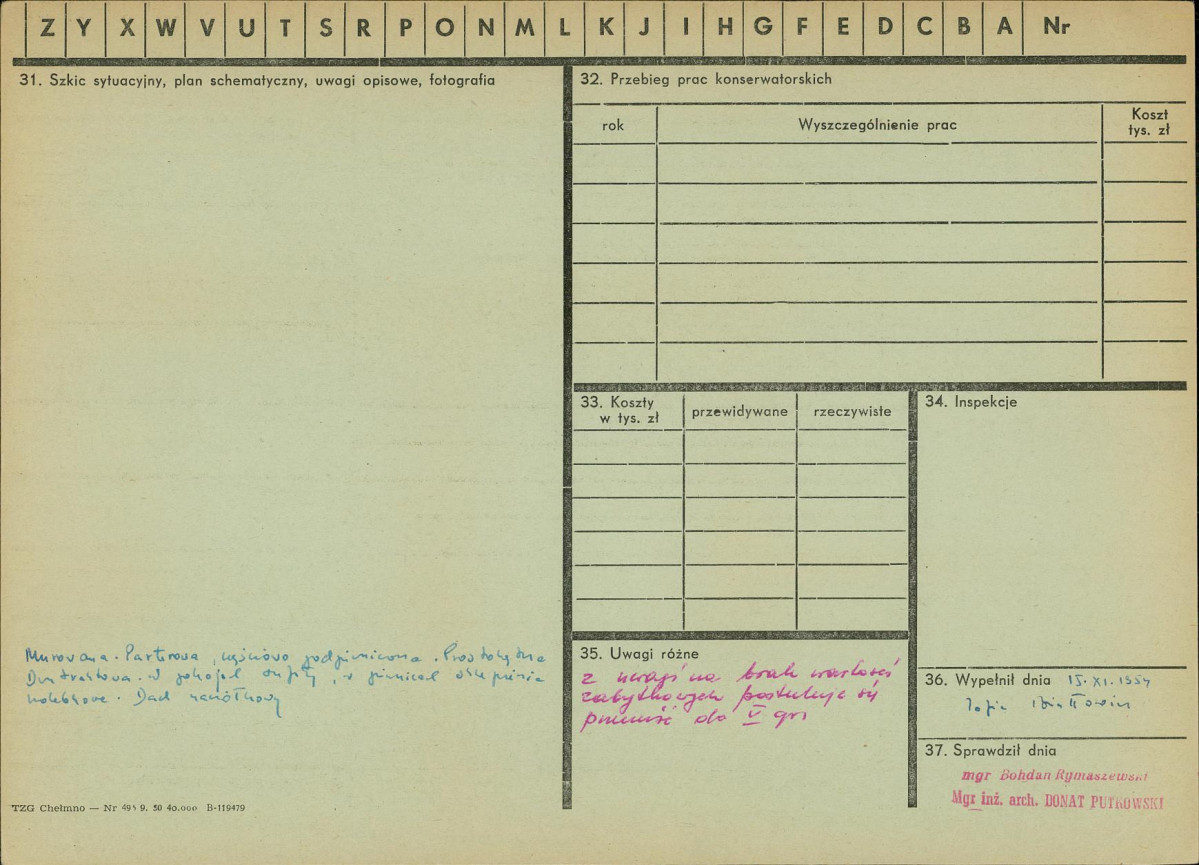 Z Y X W V U T S R P O N M L K J I H G F E D C B A Nr
31. Szkic sytuacyjny, plan schematyczny, uwagi opisowe, fotografia
Murowana. Parterowa, częściowo podpiwniczona. Prostokątna
Dwutraktowa. W pokojach sufity, w piwnicach sklepienia
kolebkowe. Dach
TZG Chełmno — Nr 495 9. 50 40.000 B-119479
32. Przebieg prac konserwatorskich
rok
Wyszczególnienie prac
Koszt
tys. zł
33. Koszty
w tys. zł
przewidywane
rzeczywiste
34. Inspekcje
35. Uwagi różne
z uwagi na brak wartości
zabytkowych postuluje się
przenieść do V gr.
36. Wypełnił dnia 15.XI.1959
37. Sprawdził dnia
mgr Bohdan Rymaszewski
Mgr inż. arch. DONAT PUTKOWSKI